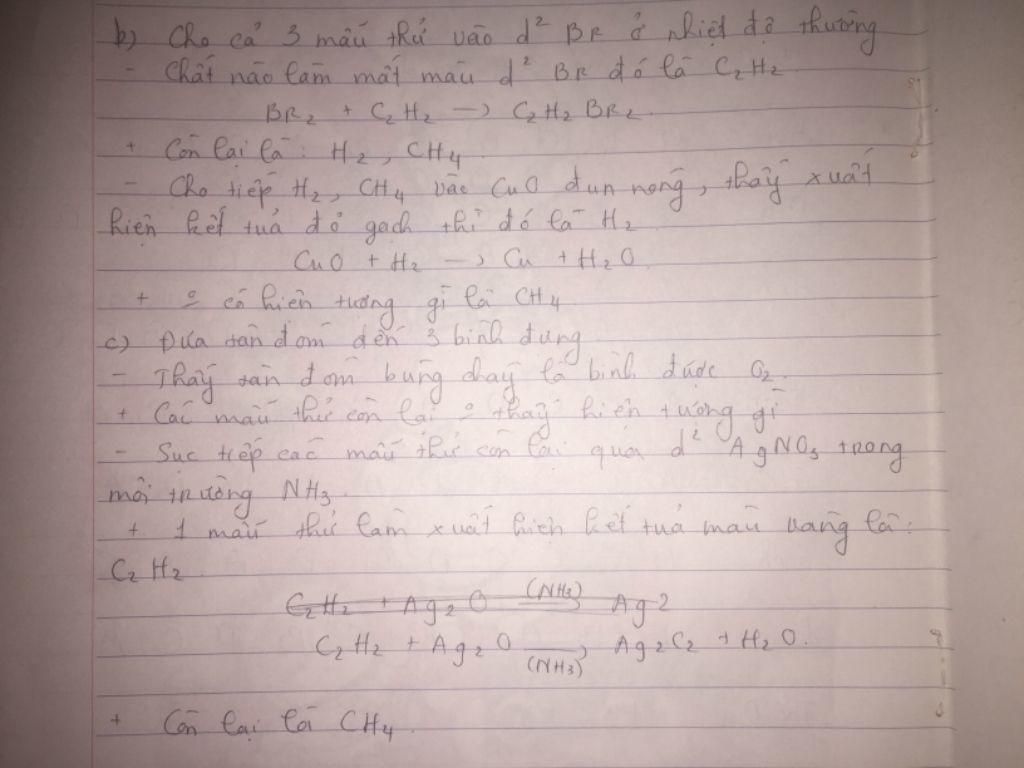 b) Cho cả 3 mẫu thử vào d² BR ở nhiệt độ thường
- Chất nào làm mất màu d² BR đó là C₂H₂
BR₂ + C₂H₂ → C₂H₂BR₂
+ Còn lại là: H₂, CH₄
- Cho tiếp H₂, CH₄ vào CuO đun nóng, thấy xuất
hiện kết tủa đỏ gạch thì đó là H₂
CuO + H₂ → Cu + H₂O
+ o có hiện tượng gì là CH₄
c) Đưa tàn đóm đến 3 bình đựng
- Thấy tàn đóm bùng cháy là bình được O₂.
+ Các mẫu thử còn lại o thấy hiện tượng gì
- Sục tiếp các mẫu thử còn lại qua d² AgNO₃ trong
môi trường NH₃.
+ 1 mẫu thử làm xuất hiện kết tủa màu vàng là:
C₂H₂
C₂H₂ + Ag₂O (NH₃) Ag2
C₂H₂ + Ag₂O →(NH₃) Ag₂C₂ + H₂O.
+ Còn lại là CH₄